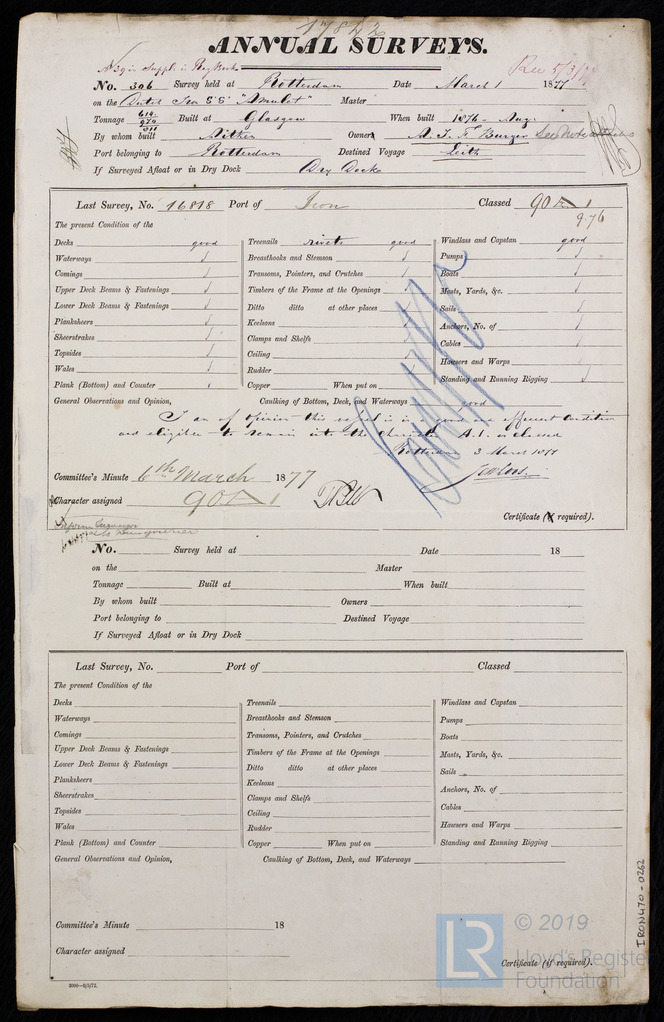 17842
ANNUAL SURVEYS.
Rec 5/3/77
No. 306 Survey held at Rotterdam Date March 1 1877
on the Dutch Iron S.S. "Amulet" Master
Tonnage 614 Built at Glasgow When built 1876 - Aug.
By whom built Aitken Owners A. J. F. Burger See Note
Port belonging to Rotterdam Destined Voyage Leith
If Surveyed Afloat or in Dry Dock Dry Dock
Last Survey, No. 16818 Port of Iron Classed 90 A 1
9.76
The present Condition of the
Decks good Treenails rivets good Windlass and Capstan good
Waterways √ Breasthooks and Stemson √ Pumps √
Comings √ Transoms, Pointers, and Crutches √ Boats √
Upper Deck Beams & Fastenings √ Timbers of the Frame at the Openings √ Masts, Yards, &c. √
Lower Deck Beams & Fastenings √ Ditto ditto at other places √ Sails √
Planksheers √ Keelsons √ Anchors, No. of √
Sheerstrakes √ Clamps and Shelfs √ Cables √
Topsides √ Ceiling √ Hawsers and Warps √
Wales √ Rudder √ Standing and Running Rigging √
Plank (Bottom) and Counter √ Copper When put on
General Observations and Opinion, Caulking of Bottom, Deck, and Waterways good
I am of opinion this vessel is in a good and efficient condition
and eligible to remain in the Character A.1. as classed
Rotterdam 3 March 1877
Committee's Minute 6th March 1877
Character assigned 90 A 1
Certificate (if required).
No. Survey held at Date 18
on the Master
Tonnage Built at When built
By whom built Owners
Port belonging to Destined Voyage
If Surveyed Afloat or in Dry Dock
Last Survey, No. Port of Classed
The present Condition of the
Decks Treenails Windlass and Capstan
Waterways Breasthooks and Stemson Pumps
Comings Transoms, Pointers, and Crutches Boats
Upper Deck Beams & Fastenings Timbers of the Frame at the Openings Masts, Yards, &c.
Lower Deck Beams & Fastenings Ditto ditto at other places Sails
Planksheers Keelsons Anchors, No. of
Sheerstrakes Clamps and Shelfs Cables
Topsides Ceiling Hawsers and Warps
Wales Rudder Standing and Running Rigging
Plank (Bottom) and Counter Copper When put on
General Observations and Opinion, Caulking of Bottom, Deck, and Waterways
Committee's Minute 18
Character assigned
Certificate (if required).
IRON470-0262
LR © 2019
Lloyd's Register
Foundation